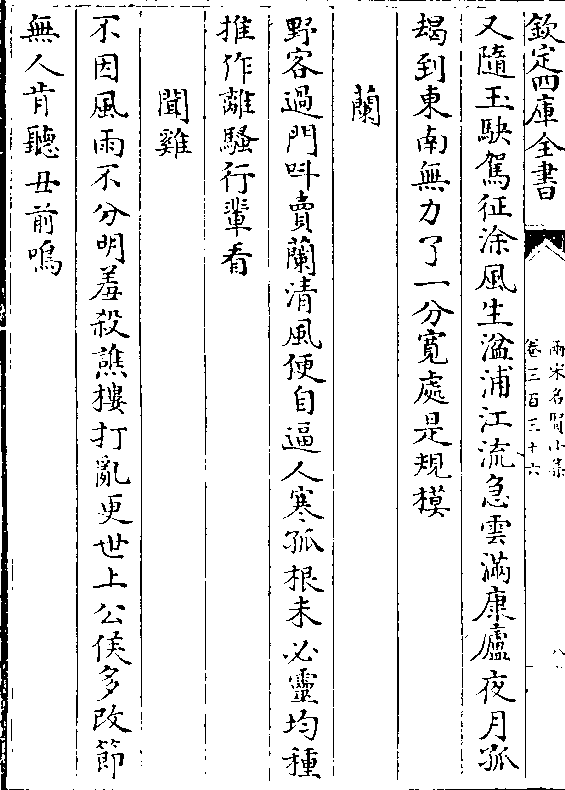 欽定四庫全書
兩宋名賢小集
卷三百三十六
八
又隨玉駃駕征涂風生湓浦江流急雲滿康廬夜月孤
朅到東南無力了一分寛處是規模
蘭
野客過門叫賣蘭清風便自逼人寒孤根未必靈均種
推作離騷行輩看
聞雞
不因風雨不分明羞殺譙樓打亂更世上公侯多改節
無人肯聽丑前鳴